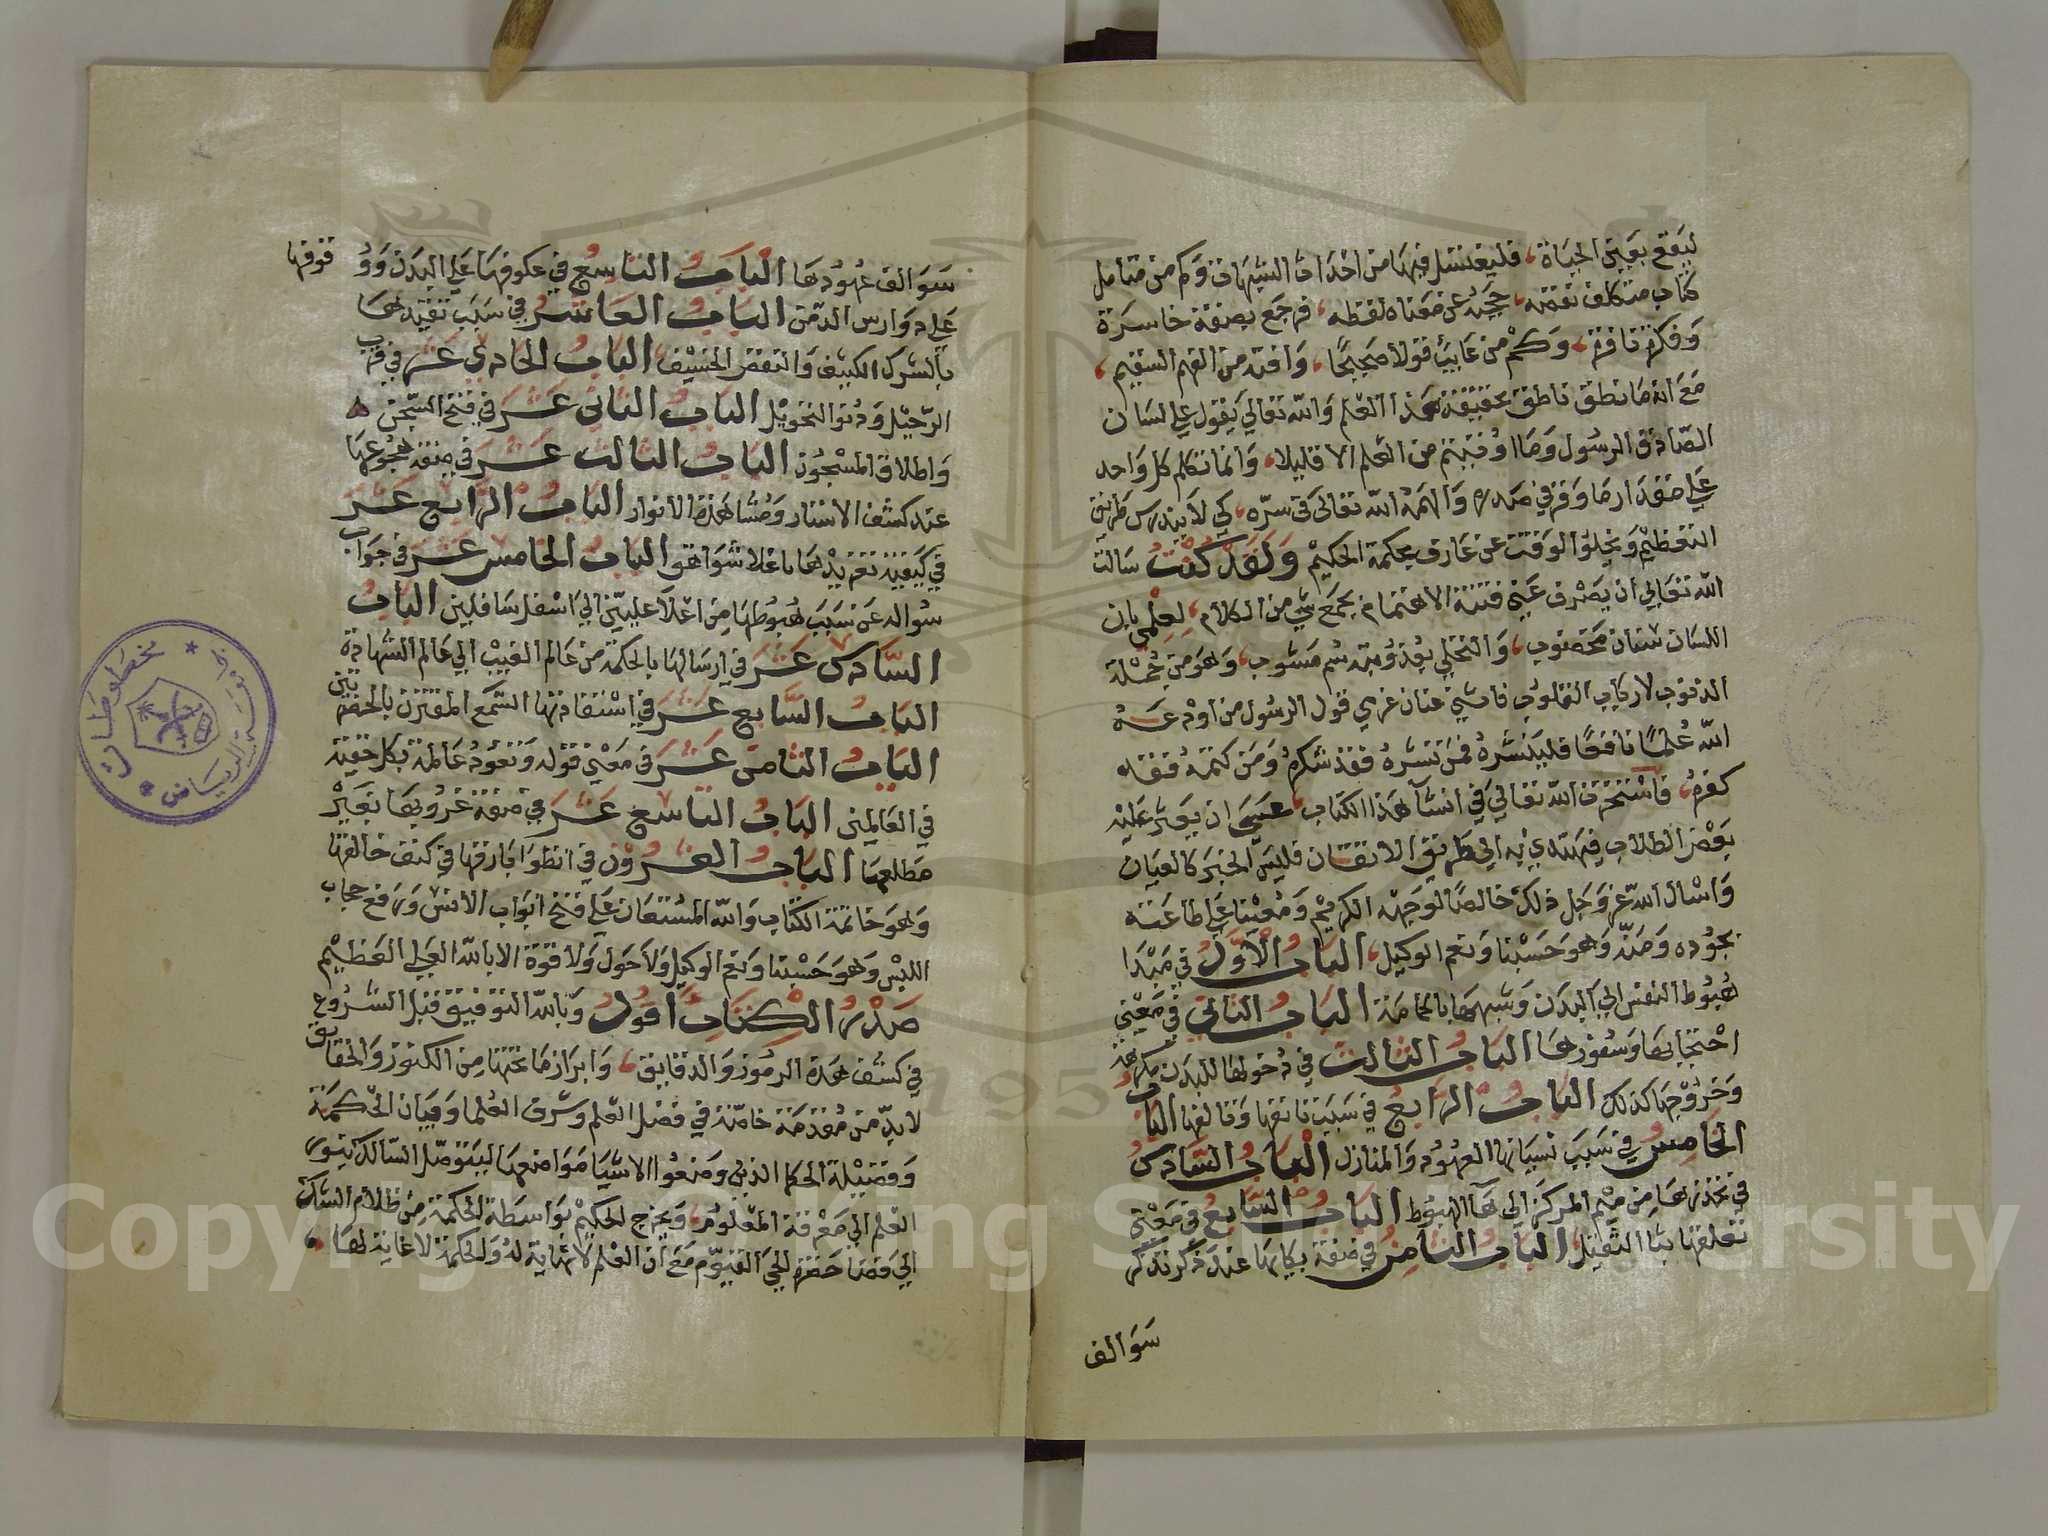 ليقع بعين الحياة، فليغتسل فيها من احداث الشبهات وكم من متامل
كتاب متكلف نقمته، حجبه عن معناه لفظه، فرجع بصفقة خاسرة
وفكرة نافرة، وكم من عايب قولا صحيحا، وافته من الفهم السقيم،
مع انه ما نطق ناطق بحقيقة هذا العلم والله تعالي يقول علي لسان
الصادق الرسول وما اوتيتم من العلم الا قليلا، وانما تكلم كل واحد
علي مقدار ما وقر في صدره والهمه الله تعالى في سره، كي لا يندرس طريق
التعظيم ويخلوا الوقت عن عارف بحكمة الحكيم ولقد كنت سالت
الله تعالي ان يصرف عني فتنة الاهتمام بجمع شي من الكلام، لعلمي بان
اللسان سنان مخضوب، والتحلي بعذوبته سم مشوب، وهو من جملة
الذنوب لارباب القلوب فاثني عنان عزمي قول الرسول من اوتي عنه
الله علما نافعا فلينشره فمن نشره فقد شكره ومن كتمه فقد
كفره، فاستخرت الله تعالي في انشآ هذا الكتاب، عسي ان يعثر عليه
بعض الطلاب فيهتدي به الي طريق الاتقان فليس الخبر كالعيان
واسال الله عز وجل ذلك خالصا لوجهه الكريم ومعينا علي طاعته
بجوده ومنه وهو حسبنا ونعم الوكيل، الباب الأول في مبدا
هبوط النفس الي البدن وشبهها بالحمامة الباب الثاني في معني
احتجابها وسفورها الباب الثالث في دخولها للبدن مكرهة
وخروجها كذلك الباب الرابع في سبب تانقها وتالفها الباب
الخامس في سبب نسيانها العهود والمنازل الباب السادس
في تحذرها من ميم المركز الي هآ الهبوط الباب السابع في معني
تعلقها بثا الثقيل، الباب الثامن في صفة بكايها عند ذكر تذكر
سوالف
سوالف عهودها الباب التاسع في عكوفها علي البدن ووقوفها
علي دوارس الدمن الباب العاشر في سبب تقيدها
بالشرك الكثيف والقفص الخسيف، الباب الحادي عشر في قرب
الرحيل ودنو التحويل الباب الثاني عشر في فتح السجن
واطلاق المسجون الباب الثالث عشر في صفة هجوعها
عند كشف الاستار ومشاهدة الانوار الباب الرابع عشر
في كيفية تغريدها باعلا شواهق الباب الخامس عشر في جواب
سواله عن سبب هبوطها من اعلا عليين الي اسفل سافلين الباب
السادس عشر في ارسالها بالحكمة من عالم الغيب الي عالم الشهادة
الباب السابع عشر في استفادتها السمع المقترن بالحقيقتين
الباب الثامن عشر في معني قوله وتعود عالمة بكل خفية
في العالمين الباب التاسع عشر في صفة غروبها بغير
مطلعها الباب العشرون في انطوا بارقها في كنف خالقها
وهو خاتمة الكتاب والله المستعان علي فتح ابواب الانس ورفع حجاب
اللبس وهو حسبنا ونعم الوكيل ولا حول ولا قوة الا بالله العلي العظيم
صدر الكتاب أقول وبالله التوفيق قبل الشروع
في كشف هذه الرموز والدقايق، وابراز ما تحتها من الكنوز والحقايق
لا بد من مقدمة خاصة في فضل العلم وشرف العلما وبيان الحكمة
وفضيلة الحكما الذين وضعوا الاشيا مواضعها ليتوصل السالك بنور
العلم الي معرفة المعلوم، ويخرج الحكيم بواسطة الحكمة من ظلام الشك
الي فضا حضرة الحي القيوم مع ان العلم لا نهاية له والحكمة لا غاية لها،
مخطوطات
جامعة الرياض
Copyright © King Saud University
1957